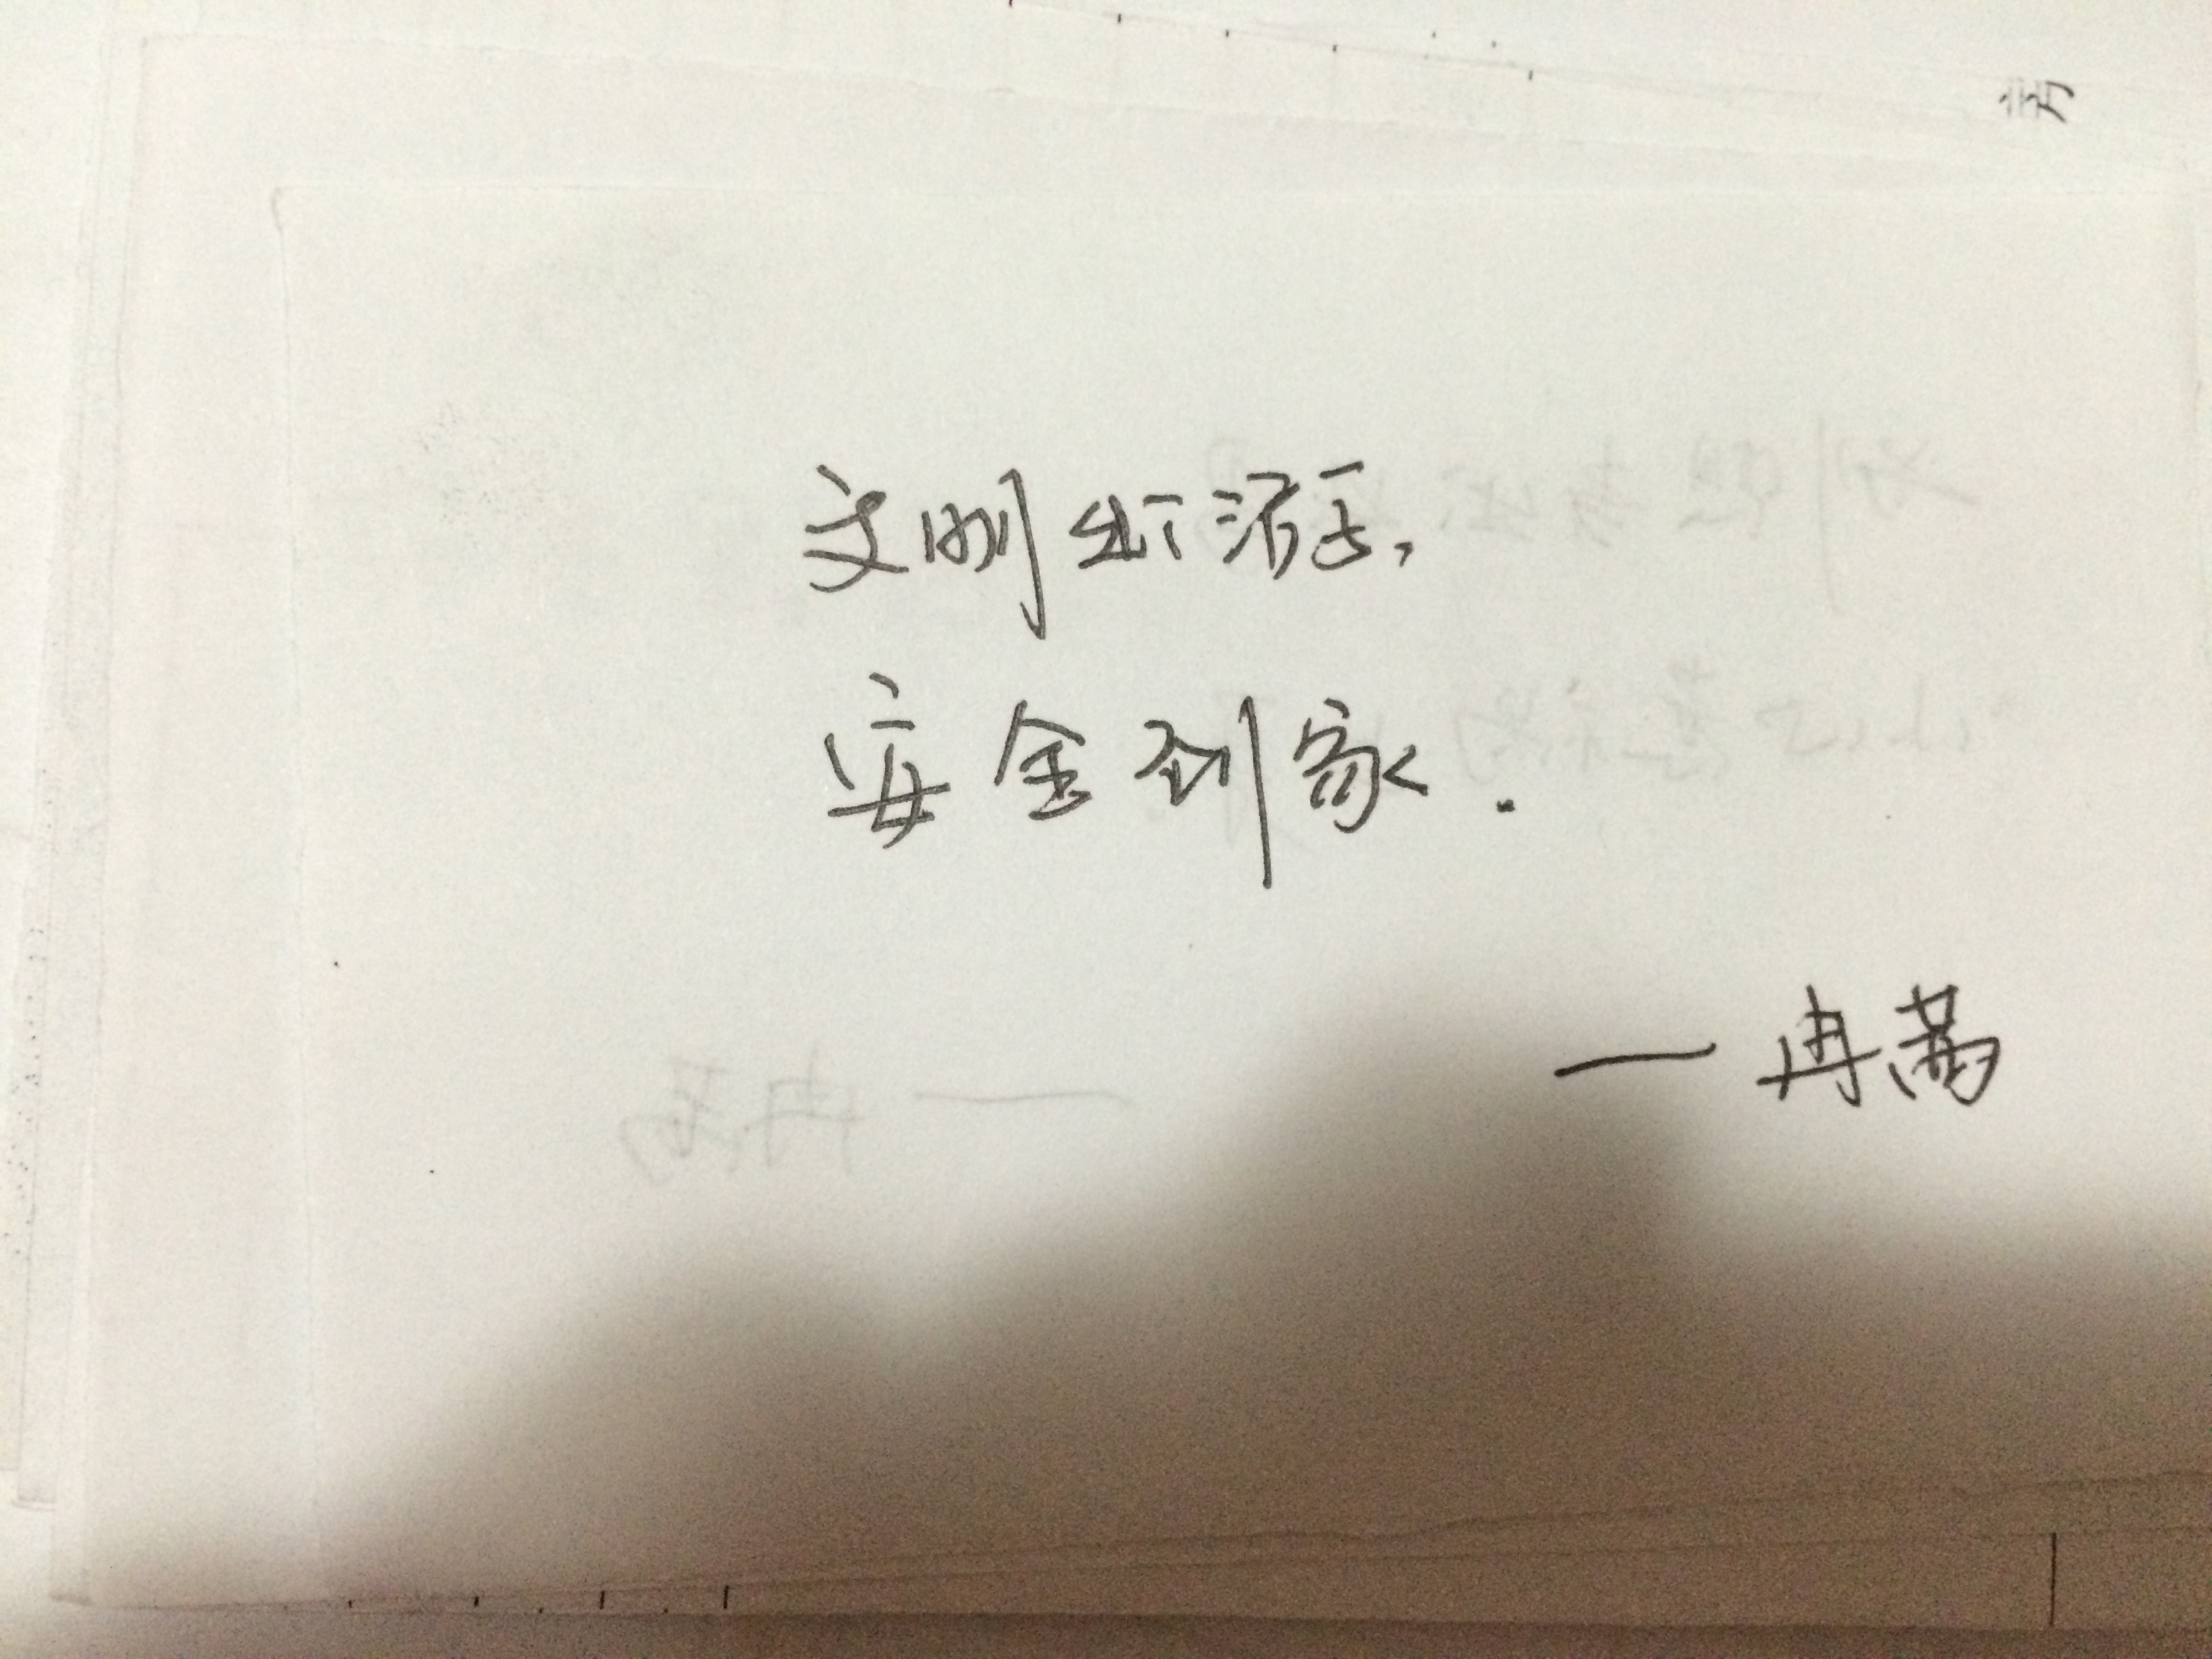 文明出游，
安全到家.
— 冉